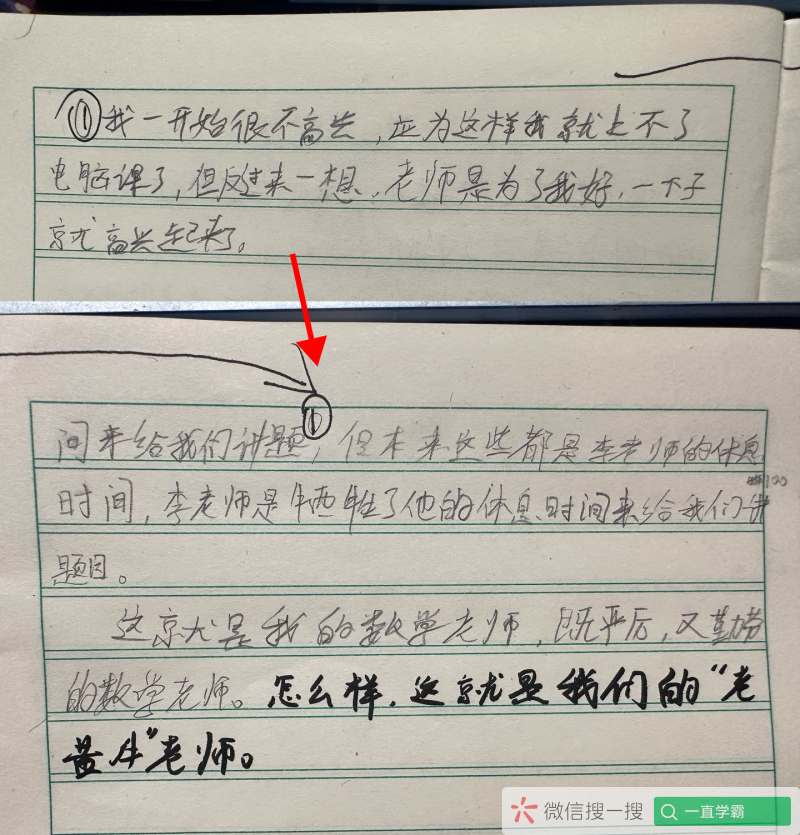 ①我一开始很不高兴,应为这样我就上不了
电脑课了,但反过来一想,老师是为了我好,一下子
就高兴起来了。
①
间来给我们讲题,但本来这些都是李老师的休息
100
时间,李老师是牺牲了他的休息时间来给我们讲
题目。
这就是我的数学老师,既严厉,又勤劳
的数学老师。怎么样,这就是我们的“老
黄牛”老师。
微信搜一搜 一直学霸